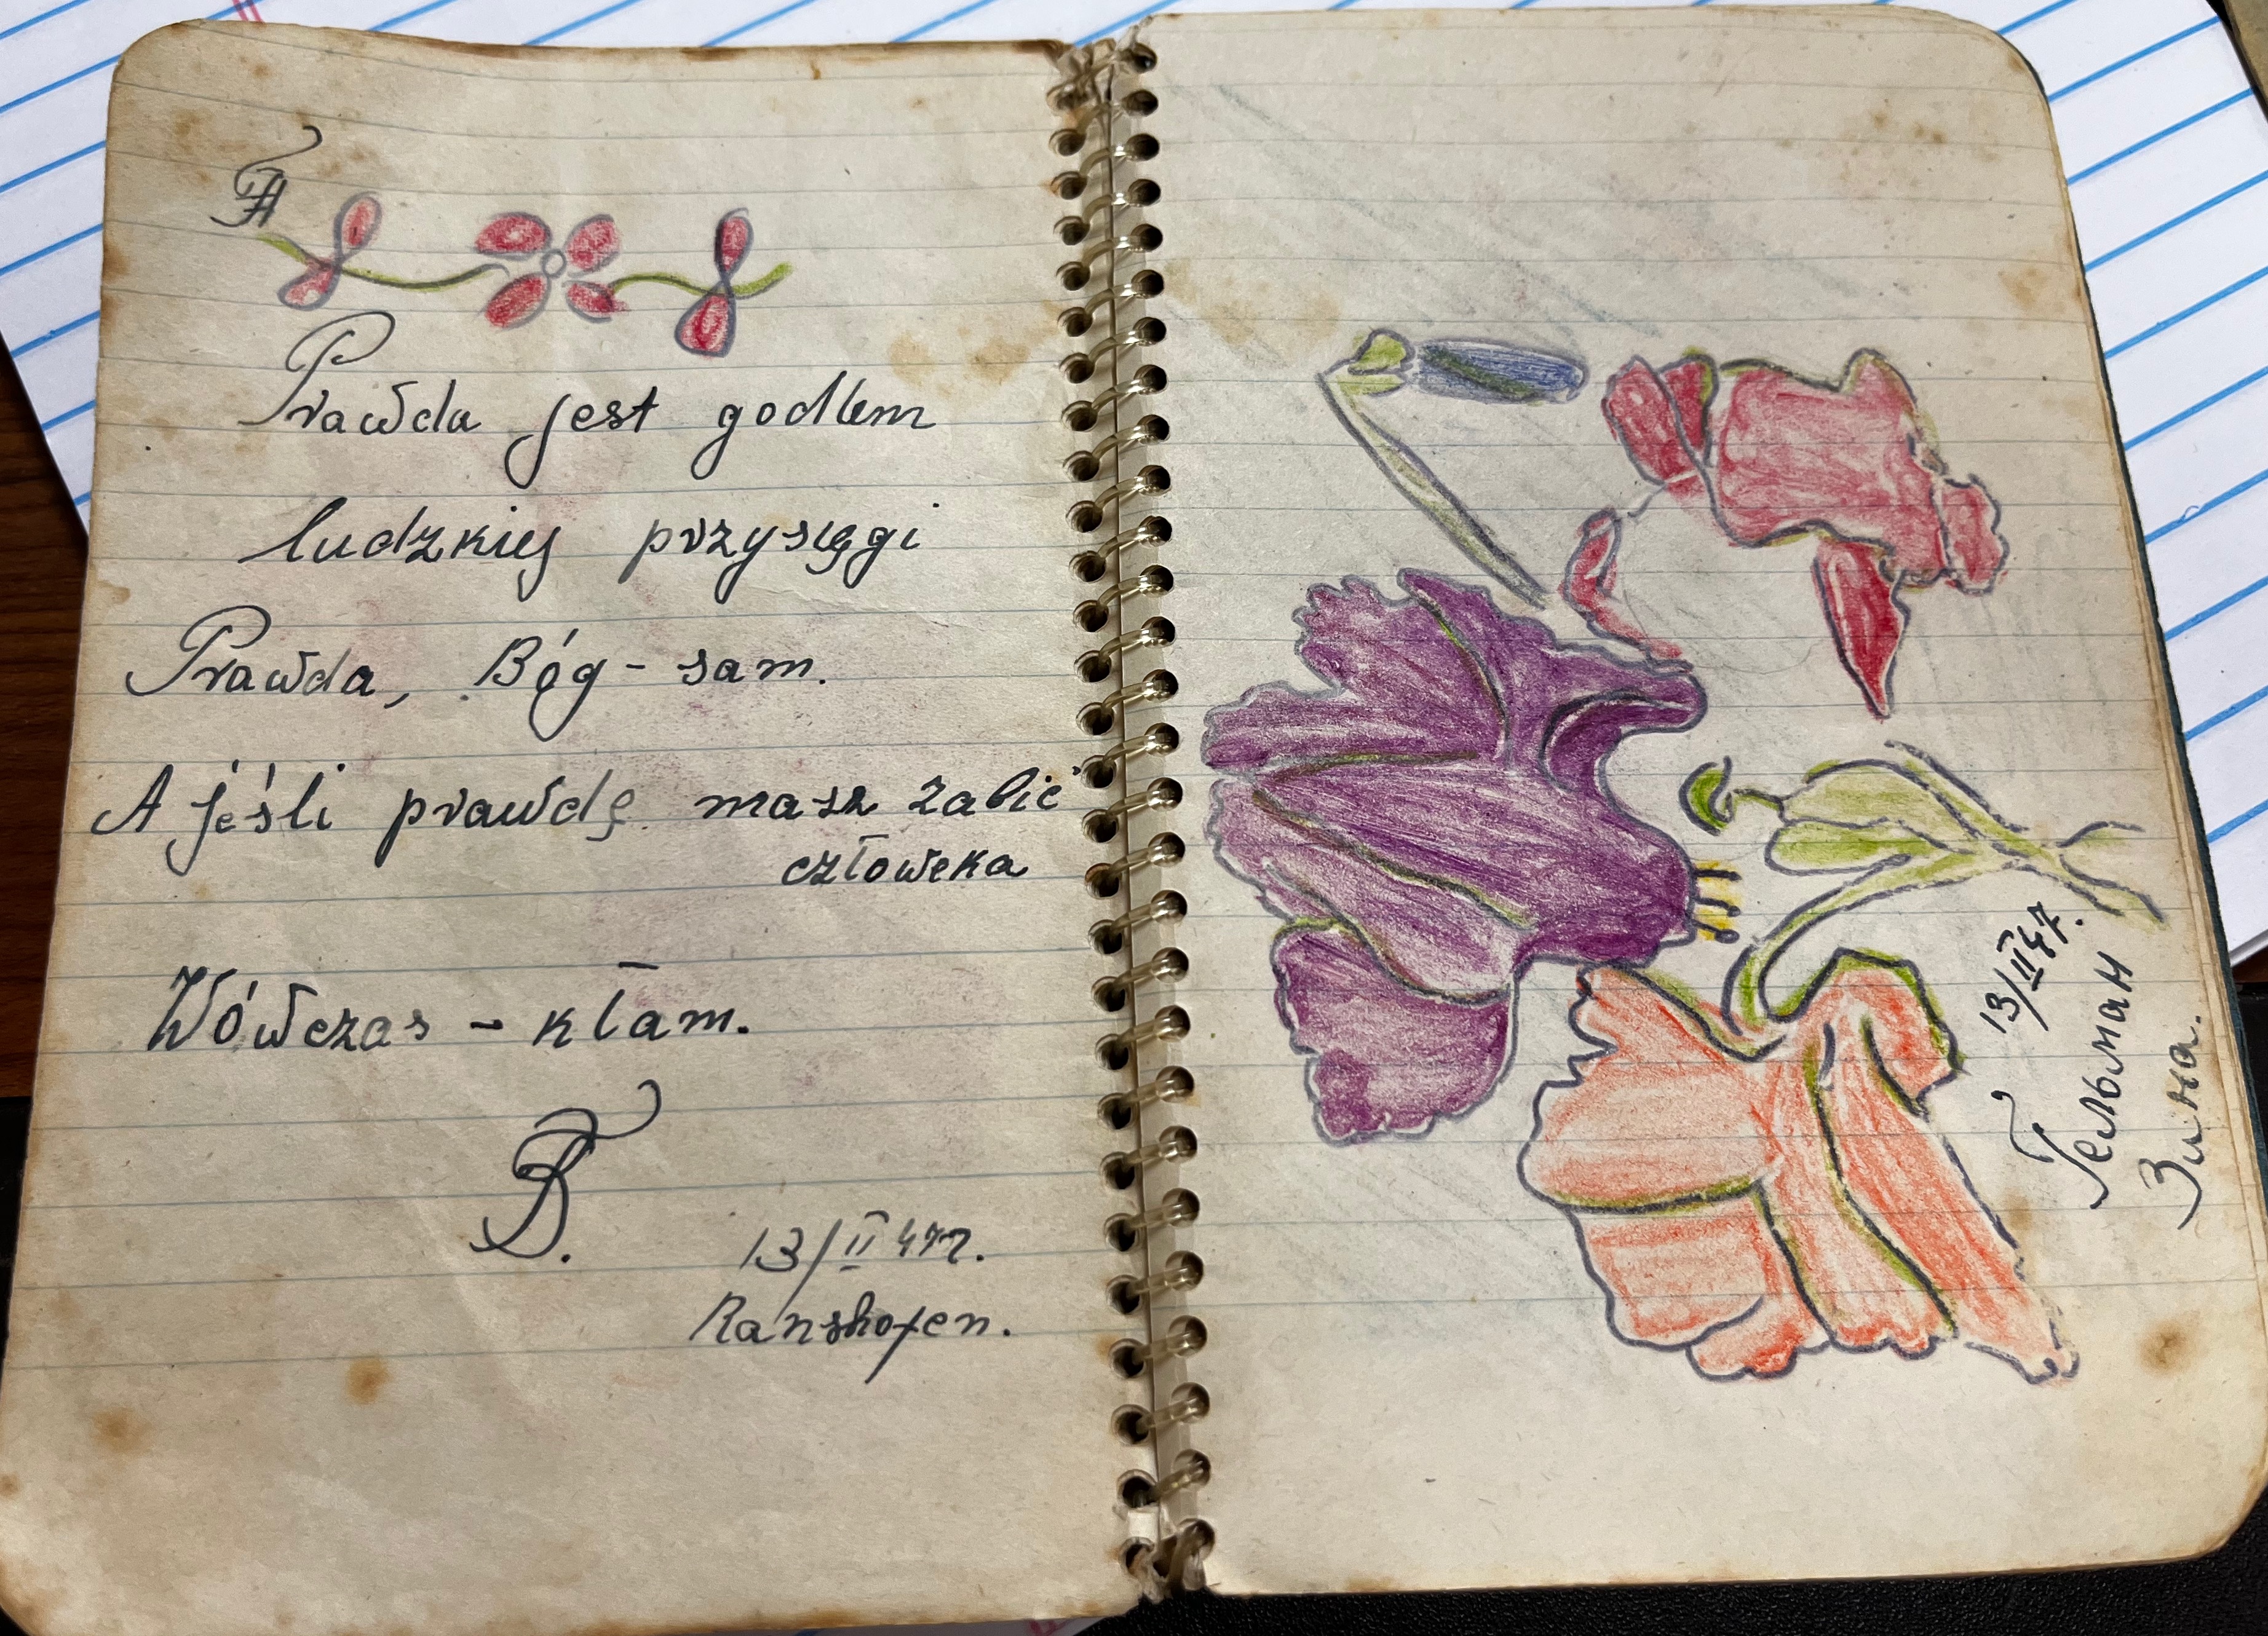 Prawda jest godłem
ludzkiej przysięgi
Prawda, Bóg - sam.
A jeśli prawdę masz zabić
człoweka
Wówczas - kłam.
B.
13/II 47r.
Ranshofen.
13/II 47.
Гельман
Зина.